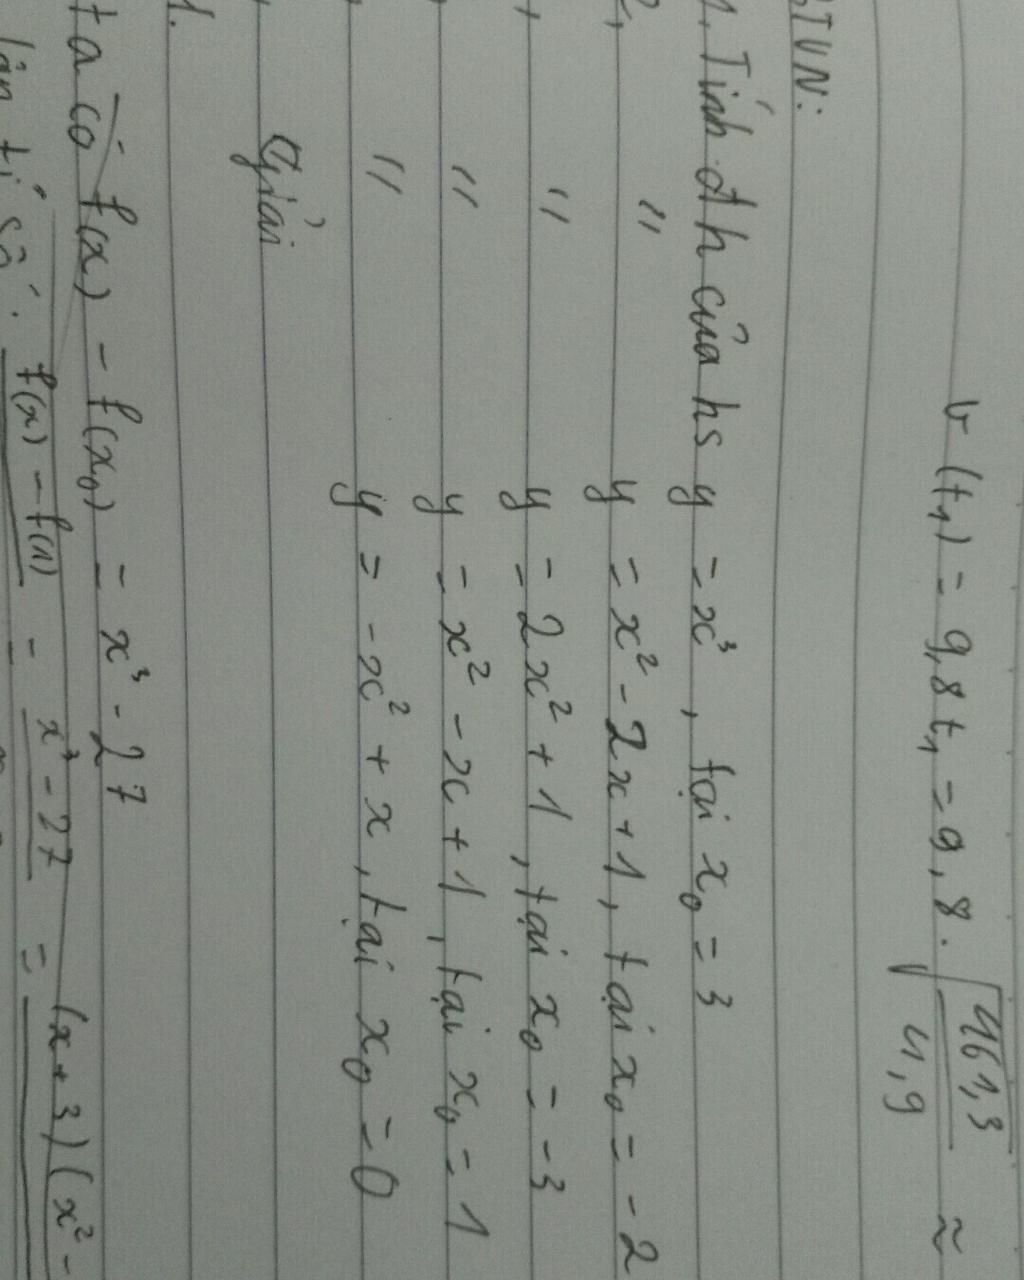 v(t₁) = 9,8t₁ = 9,8. √461,3/4,9 ≈
BTVN:
1. Tính đh của hs y = x³, tại x₀ = 3
2, " y = x² - 2x + 1, tại x₀ = -2
, " y = 2x² + 1, tại x₀ = -3
, " y = x² - x + 1, tại x₀ = 1
, " y = -x² + x, tại x₀ = 0
Giải
1.
ta có f(x) - f(x₀) = x³ - 27
lập tỉ số: f(x) - f(1) = x³ - 27 = (x + 3)(x² -